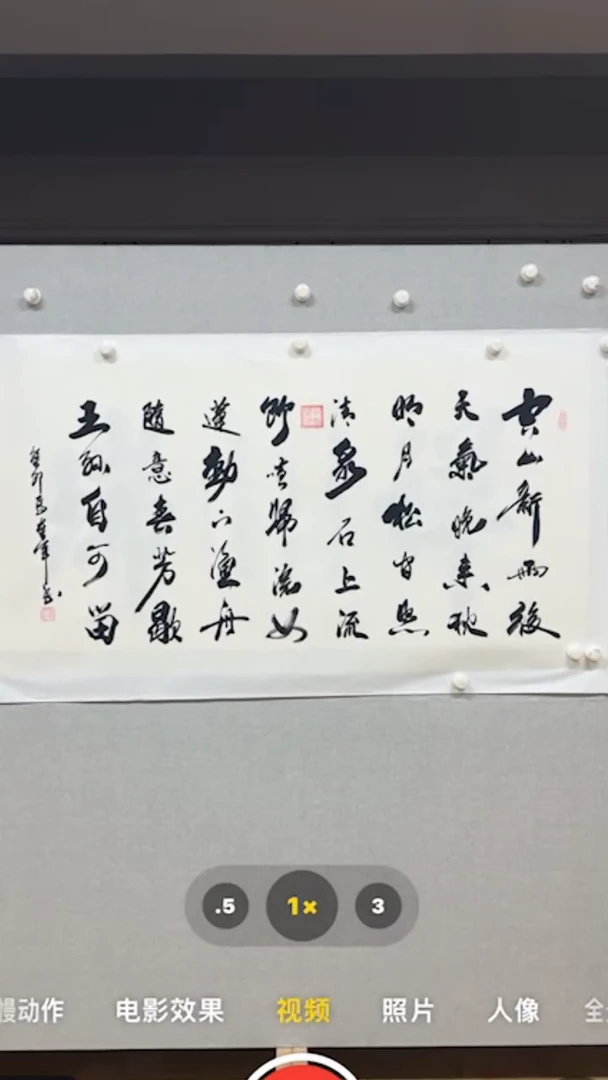 空山新雨後
天氣晚来秋
明月松间照
清泉石上流
竹喧歸浣女
蓮動下漁舟
隨意春芳歇
王孫自可留
癸卯
.5 1× 3
慢动作 电影效果 视频 照片 人像 全